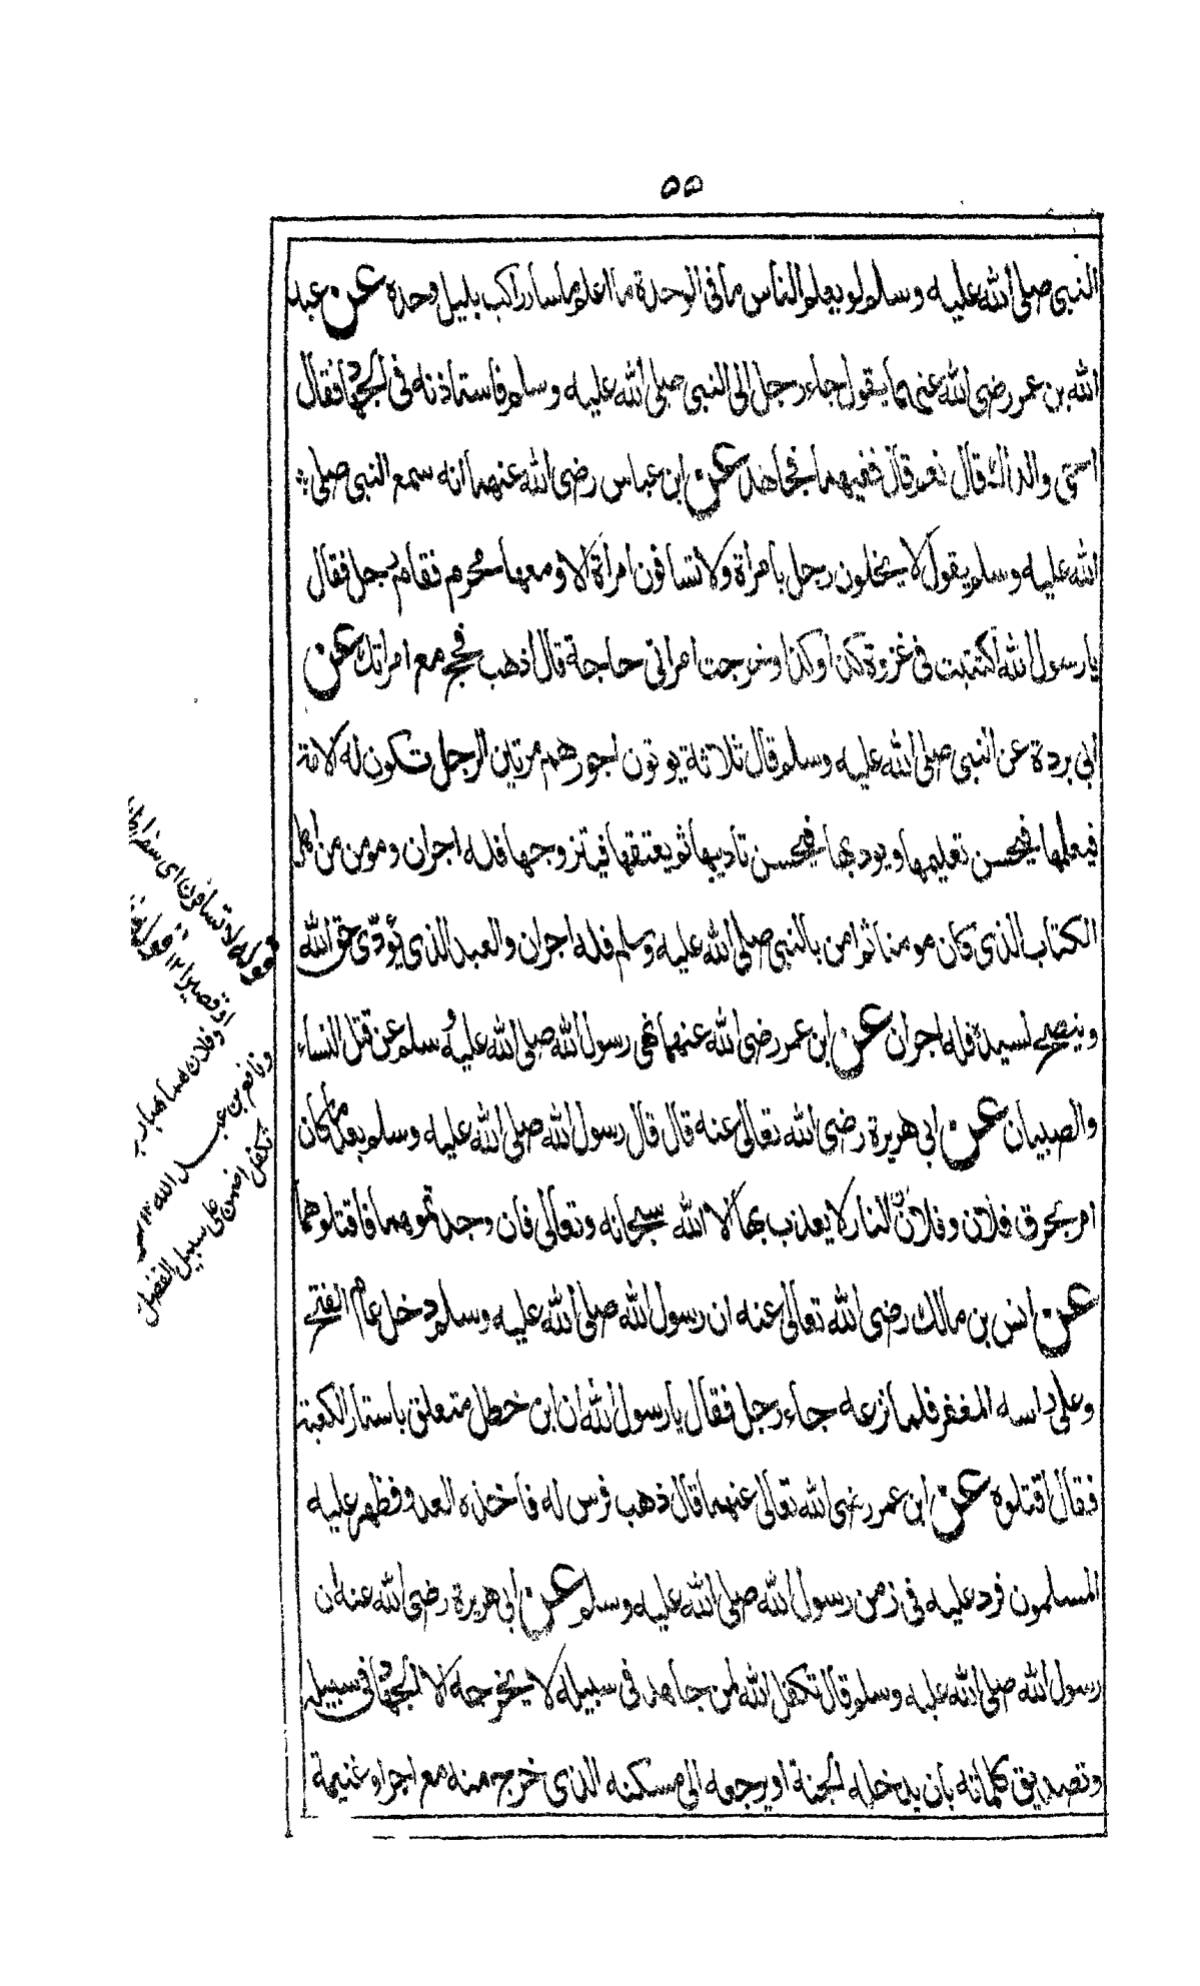 ٥٥
النبي صلى الله عليه وسلم لو يعلم الناس ما فى الوحدة ما اعلم ما سار راكب بليل وحده عن عبد
الله بن عمر رضى الله عنهما يقول جاء رجل الى النبي صلى الله عليه وسلم فاستاذنه فى الجهاد فقال
احى والداك قال نعم قال ففيهما فجاهد عن ابن عباس رضى الله عنهما انه سمع النبي صلى
الله عليه وسلم يقول لا يخلون رجل بامراة ولا تسافرن امراة الا ومعها محرم فقام رجل فقال
يا رسول الله اكتتبت فى غزوة كذا وكذا وخرجت امراتى حاجة قال اذهب فحج مع امراتك عن
ابي بردة عن النبي صلى الله عليه وسلم قال ثلاثة يوتون اجورهم مرتين الرجل تكون له الامة
فيعلمها فيحسن تعليمها ويودبها فيحسن تاديبها ثم يعتقها فيتزوجها فله اجران ومومن من اهل
الكتاب الذى كان مومنا ثم امن بالنبي صلى الله عليه وسلم فله اجران والعبد الذى يؤدّى حق الله
وينصح لسيده فله اجران عن ابن عمر رضى الله عنهما نهى رسول الله صلى الله عليه وسلم عن قتل النساء
والصبيان عن ابي هريرة رضى الله تعالى عنه قال قال رسول الله صلى الله عليه وسلم بعد ما كان
امر بحرق فلان وفلان ان النار لا يعذب بها الا الله سبحانه وتعالى فان وجدتموهما فاقتلوهما
عن انس بن مالك رضى الله تعالى عنه ان رسول الله صلى الله عليه وسلم دخل عام الفتح
وعلى راسه المغفر فلما نزعه جاء رجل فقال يا رسول الله ان ابن خطل متعلق باستار الكعبة
فقال اقتلوه عن ابن عمر رضى الله تعالى عنهما قال ذهب فرس له فاخذه العدو فظهر عليه
المسلمون فرد عليه فى زمن رسول الله صلى الله عليه وسلم عن ابي هريرة رضى الله عنه ان
رسول الله صلى الله عليه وسلم قال تكفل الله لمن جاهد فى سبيله لا يخرجه الا الجهاد فى سبيله
وتصديق كلماته بان يدخله الجنة او يرجعه الى مسكنه الذى خرج منه مع اجر او غنيمة
قوله لا تسافرن اى سفرا
او قصيرا ١٢ قوله
وفلان هما هبار بن
ونافع بن عبد الله ١٢
تكفل اى ضمن على سبيل الفضل